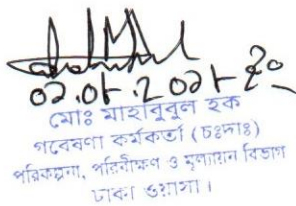 ০২.০৮.২০২৮ইং
মোঃ মাহাবুবুল হক
গবেষণা কর্মকর্তা (চঃদাঃ)
পরিকল্পনা, পরিবীক্ষণ ও মূল্যায়ন বিভাগ
ঢাকা ওয়াসা।